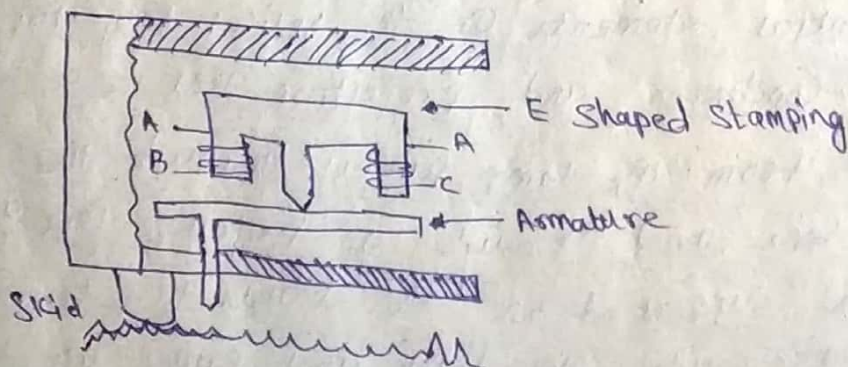 E Shaped Stamping
A
A
B
C
Armature
Skid